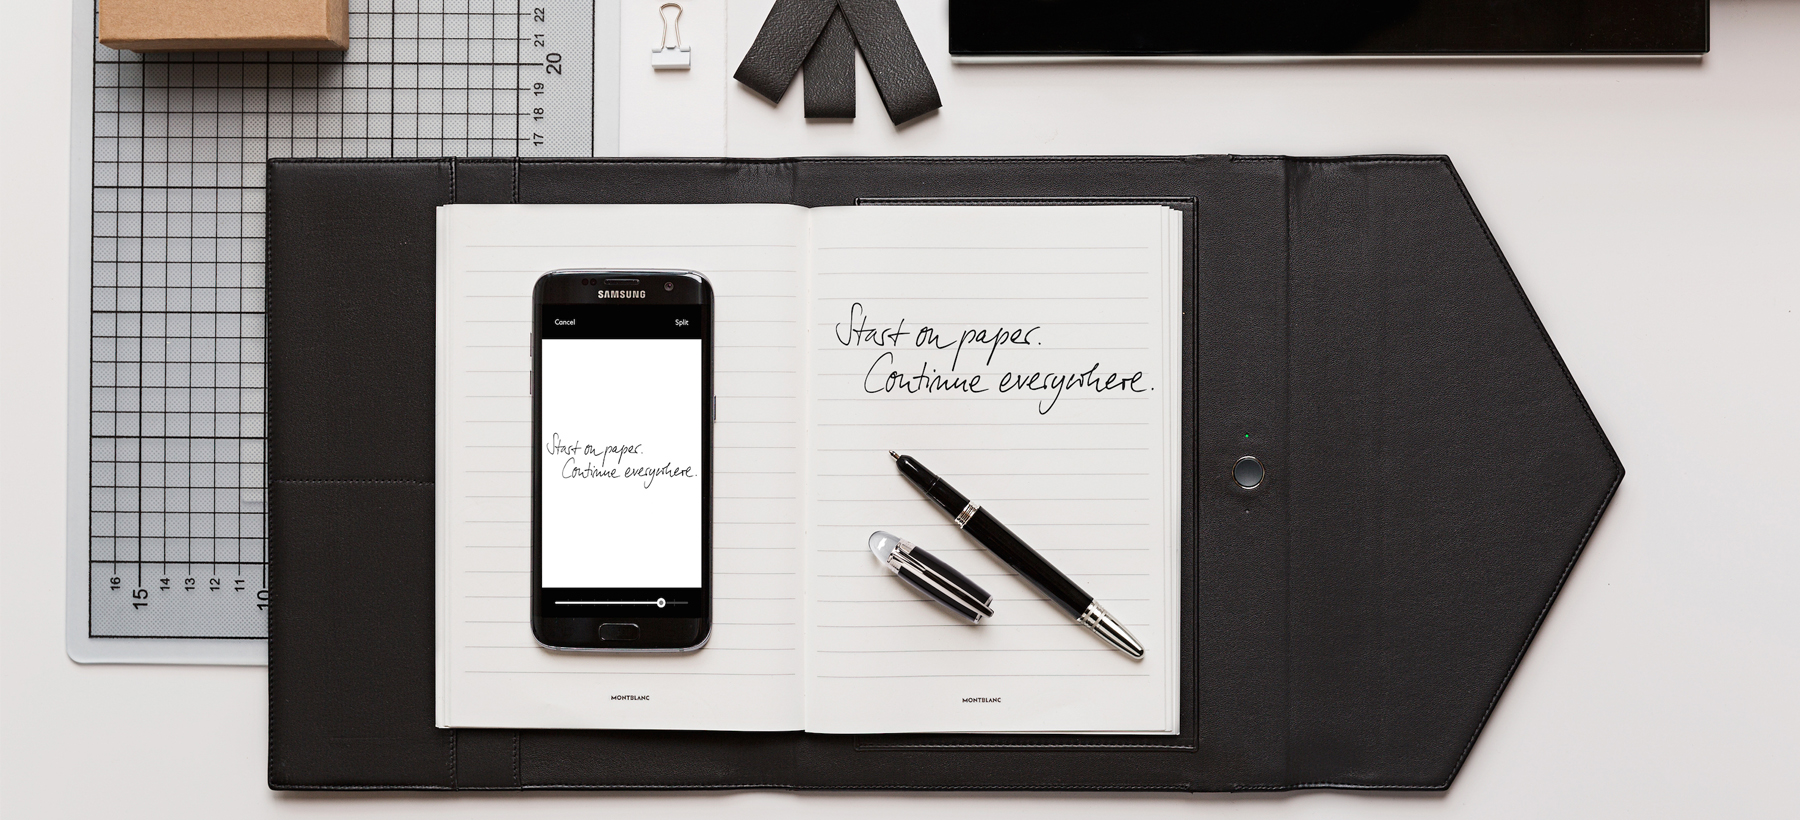 22
21
20
19
18
17
16
15
14
13
12
11
10
SAMSUNG
Cancel
Split
Start on paper.
Continue everywhere.
Start on paper.
Continue everywhere.
MONTBLANC
MONTBLANC